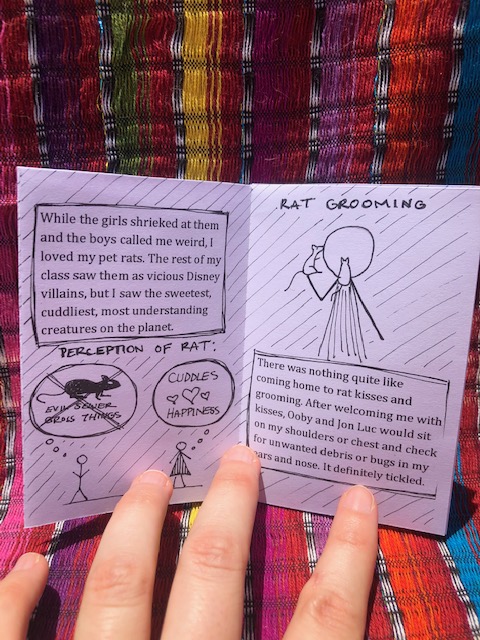 While the girls shrieked at them
and the boys called me weird, I
loved my pet rats. The rest of my
class saw them as vicious Disney
villains, but I saw the sweetest,
cuddliest, most understanding
creatures on the planet.
PERCEPTION OF RAT:
EVIL SEWER
GROSS THINGS
CUDDLES
HAPPINESS
RAT GROOMING
There was nothing quite like
coming home to rat kisses and
grooming. After welcoming me with
kisses, Ooby and Jon Luc would sit
on my shoulders or chest and check
for unwanted debris or bugs in my
ears and nose. It definitely tickled.